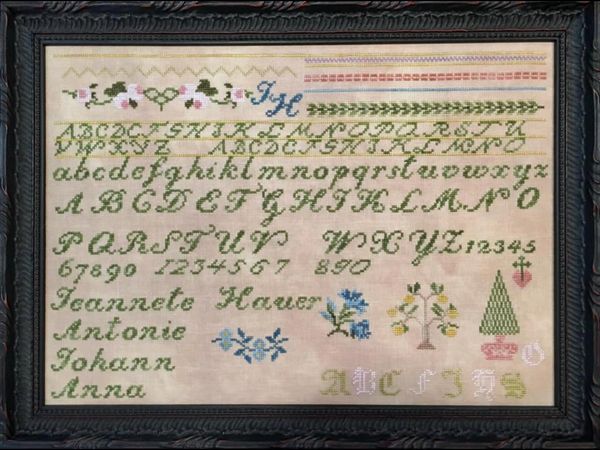 J H
ABCDEFGHIKLMNOPQRSTU
VWXYZ ABCDEFGHIKLMNO
abcdefghiklmnopqrstuvwxyz
ABCDEFGHIKLMNO
PQRSTUV WXYZ12345
67890 1234567 890
Jeannete Hauer
Antonie
Johann
Anna
O
ABCFJHS